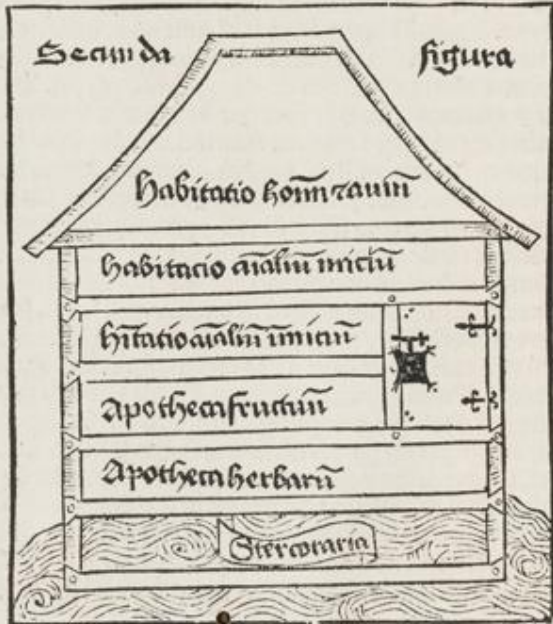 Secunda figura
habitatio hoĩm ⁊ auiũ
habitacio aĩaliũ miciũ
hĩtatio aĩaliũ ĩmiciũ
Apotheca fructuũ
Apotheca herbarũ
Stercoraria